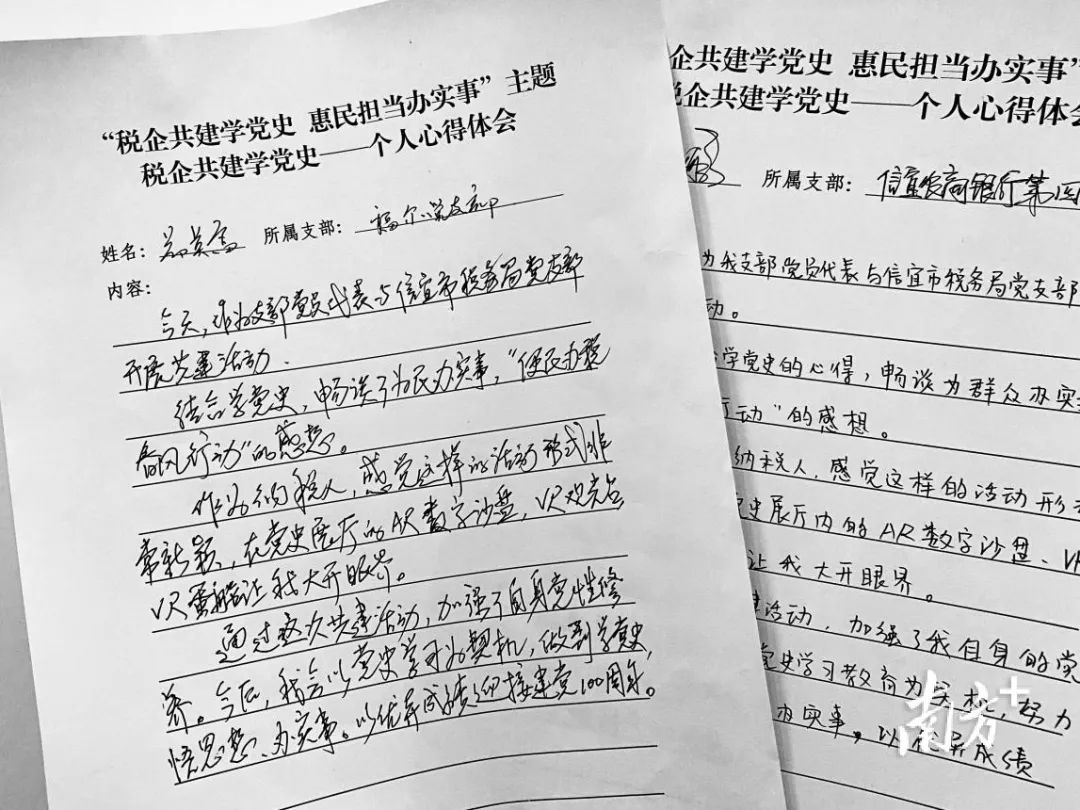 “税企共建学党史 惠民担当办实事”主题
税企共建学党史——个人心得体会
姓名： 所属支部： 支部
内容：
今天，作为支部党员代表与信宜市税务局党支部
开展共建活动．
结合学党史，畅谈了为民办实事，“便民办税
春风行动”的感想。
作为纳税人，感觉这样的活动形式非
常新颖，在党史展厅的AR数字沙盘，VR观光台
VR蛋椅让我大开眼界。
通过这次共建活动，加强了自身党性修
养。今后，我会以党史学习为契机，做到学党史、
悟思想、办实事。以优异成绩迎接建党100周年。
企共建学党史 惠民担当办实事”
税企共建学党史——个人心得体会
所属支部：信宜农商银行第四
为我支部党员代表与信宜市税务局党支部
动。
学党史的心得，畅谈为群众办实
行动”的感想。
纳税人，感觉这样的活动形
史展厅内的AR数字沙盘、VR
让我大开眼界。
活动，加强了我自身的党
党史学习教育为契机，努力
办实事，以优异成绩
南方+